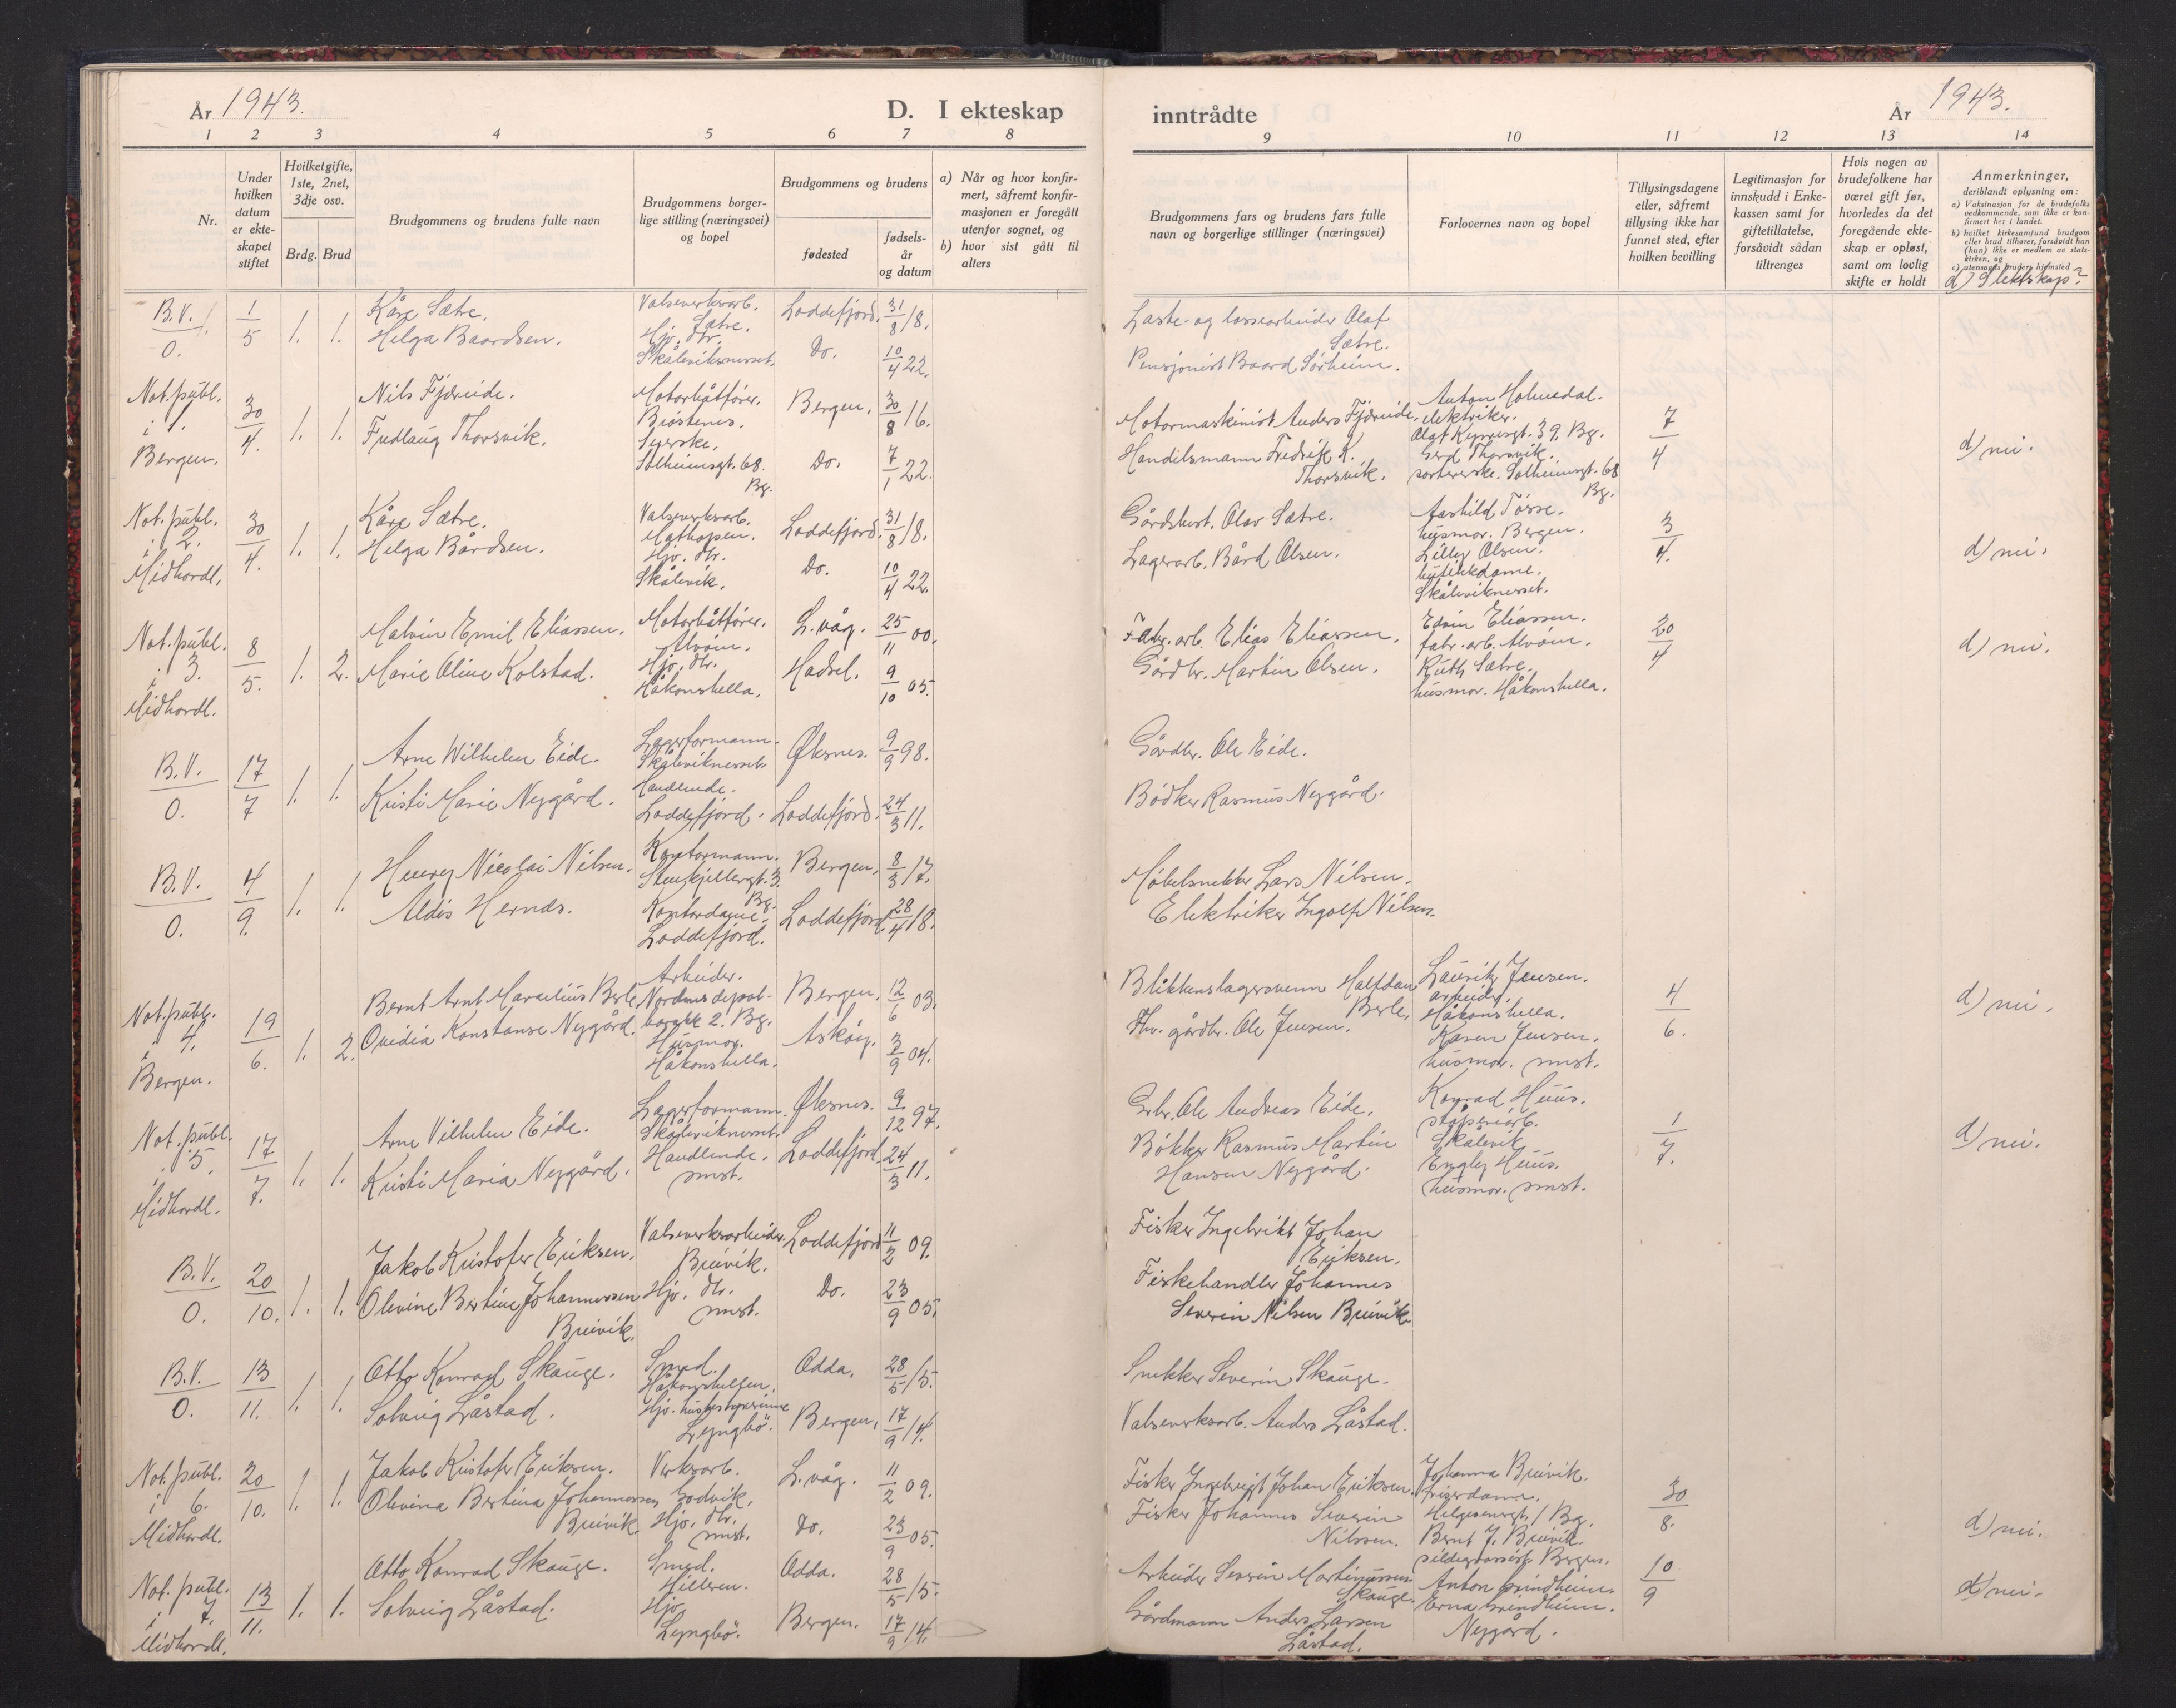 År 1943.
D. I ekteskap
1 2 3 4 5 6 7 8
Nr.
Under hvilken datum er ekteskapet stiftet
Hvilketgifte, 1ste, 2net, 3dje osv.
Brdg. Brud
Brudgommens og brudens fulle navn
Brudgommens borgerlige stilling (næringsvei) og bopel
Brudgommens og brudens
fødested
fødselsår og datum
a) Når og hvor konfirmert, såfremt konfirmasjonen er foregått utenfor sognet, og
b) hvor sist gått til alters
B.V. 1.
0.
1/5
1. 1.
Kåre Sætre.
Helga Baardsen.
Valseverksarb.
Sætre.
Hjv. dtr.
Skåleviksnesset.
Loddefjord. 31/8 18.
Do. 10/4 22.
Not. publ.
i 1.
Bergen.
30/4.
1. 1.
Nils Fjæreide.
Fredlaug Thorsvik.
Motorbåtfører.
Bjøstenes.
Syerske.
Solheimsgt. 68.
Bg.
Bergen. 30/8 16.
Do. 7/1 22.
Not. publ.
i 2.
Midhordl.
30/4.
1. 1.
Kåre Sætre.
Helga Bårdsen.
Valseverksarb.
Mathopen.
Hjv. dtr.
Skålevik.
Loddefjord. 31/8 18.
Do. 10/4 22.
Not. publ.
i 3.
Midhordl.
8/5.
1. 2.
Malvin Emil Eliassen.
Marie Oline Kolstad.
Motorbåtfører.
Alvøin.
Hjv. dtr.
Håkonshella.
L.våg. 25/11 00.
Hadsel. 9/10 05.
B.V.
0.
17/7
1. 1.
Arne Wilhelm Eide.
Kristi Marie Nygård.
Lagerformann.
Skåleviknesset.
Handlende.
Loddefjord.
Øksnes. 9/9 98.
Loddefjord. 24/3 11.
B.V.
0.
4/9.
1. 1.
Henry Nicolai Nilsen.
Aldis Hernes.
Kontormann.
Stenkjellergt. 3.
Bg.
Kontordame.
Loddefjord.
Bergen. 8/3 17.
Loddefjord. 28/4 18.
Not. publ.
i 4.
Bergen.
19/6.
1. 2.
Bernt Arnt Marselius Berle
Ovidia Konstanse Nygård.
Arbeider.
Nordnes depot-
barakk 2. Bg.
Husmor.
Håkonshella.
Bergen. 12/6 03.
Askøy. 3/9 04.
Not. publ.
i 5.
Midhordl.
17/7.
1. 1.
Arne Vilhelm Eide.
Kristi Maria Nygård.
Lagerformann.
Skåleviknesset.
Handlende.
smst.
Øksnes. 9/12 97.
Loddefjord. 24/3 11.
B.V.
0.
20/10.
1. 1.
Jakob Kristofer Eriksen.
Olevine Bertine Johannessen
Breivik.
Valseverksarbeider.
Breivik.
Hjv. dtr.
smst.
Loddefjord 11/2 09.
Do. 23/9 05.
B.V.
0.
13/11.
1. 1.
Otto Konrad Skauge.
Solveig Låstad.
Smed.
Håkonshellen.
Hjv.
Lyngbö.
Odda. 28/5 15.
Bergen. 17/9 14.
Not. publ.
i 6.
Midhordl.
20/10.
1. 1.
Jakob Kristofer Eriksen.
Olevina Bertina Johannessen
Breivik
Verksarb.
Godvik.
Hjv. dtr.
smst.
L.våg. 11/2 09.
Do. 23/9 05.
Not. publ.
i 7.
Midhordl.
13/11.
1. 1.
Otto Konrad Skauge.
Solveig Låstad.
Smed.
Hilleren.
Hjv.
Lyngbö.
Odda. 28/5 15.
Bergen. 17/9 14.
inntrådte
År 1943.
9 10 11 12 13 14
Brudgommens fars og brudens fars fulle navn og borgerlige stillinger (næringsvei)
Forlovernes navn og bopel
Tillysingsdagene eller, såfremt tillysing ikke har funnet sted, efter hvilken bevilling
Legitimasjon for innskudd i Enkekassen samt for giftetillatelse, forsåvidt sådan tiltrenges
Hvis nogen av brudefolkene har været gift før, hvorledes da det foregående ekteskap er opløst, samt om lovlig skifte er holdt
Anmerkninger,
deriblandt oplysning om:
a) Vaksinasjon for de brudefolks vedkommende, som ikke er konfirmert her i landet.
b) hvilket kirkesamfund brudgom eller brud tilhører, forsåvidt han (hun) ikke er medlem av statskirken, og
c) utensogns bruders hjemsted
d) Slektskap?
Laste- og lossearbeider Olaf
Sætre.
Pensjonist Baard Sørheim.
Motormaskinist Anders Fjæreide.
Handelsmann Fredrik K.
Thorsvik.
Anton Holmedal.
elektriker.
Olaf Kyrresgt. 39. Bg.
Gerd Thorsvik.
sorterske. Solheimsgt. 68
Bg.
7/4
d) nei.
Gårdsbest. Olav Sætre.
Lagerarb. Bård Olsen.
Aashild Tøsse.
husmor. Bergen.
Lilly Olsen.
butikkdame.
Skåleviknesset.
3/4.
d) nei.
Fabr.arb. Elias Eliassen.
Gårdbr. Martin Olsen.
Edvin Eliassen.
fabr.arb. Alvøin.
Ruth Sætre.
husmor. Håkonshella.
20/4
d) nei.
Gårdbr. Ole Eide.
Bödker Rasmus Nygård.
Møbelsnekker Lars Nilsen.
Elektriker Ingolf Nilsen.
Blikkenslagersvenn Halfdan
Berle.
Fhv. gårdbr. Ole Jensen.
Lauritz Jensen.
arbeider.
Håkonshella.
Karen Jensen.
husmor. smst.
4/6.
d) nei.
Grbr. Ole Andreas Eide.
Bøkker Rasmus Martin
Hansen Nygård.
Konrad Huus.
støperiarb.
Skålevik.
Engly Huus.
husmor. smst.
1/7.
d) nei.
Fisker Ingebrikt Johan
Eriksen.
Fiskehandler Johannes
Severin Nilsen Breivik
Snekker Severin Skauge.
Valseverksarb. Anders Låstad.
Fisker Ingebrigt Johan Eriksen.
Fisker Johannes Severin
Nilssen.
Johanna Breivik.
friserdame.
Helgesensgt. 1 Bg.
Bernt J. Breivik.
sildegrossist Bergen.
30/8.
d) nei.
Arbeider Severin Martinussen
Skauge.
Gårdmann Anders Larsen
Låstad.
Anton Grindheim.
Erna Grindheim.
Nygård.
10/9
d) nei.